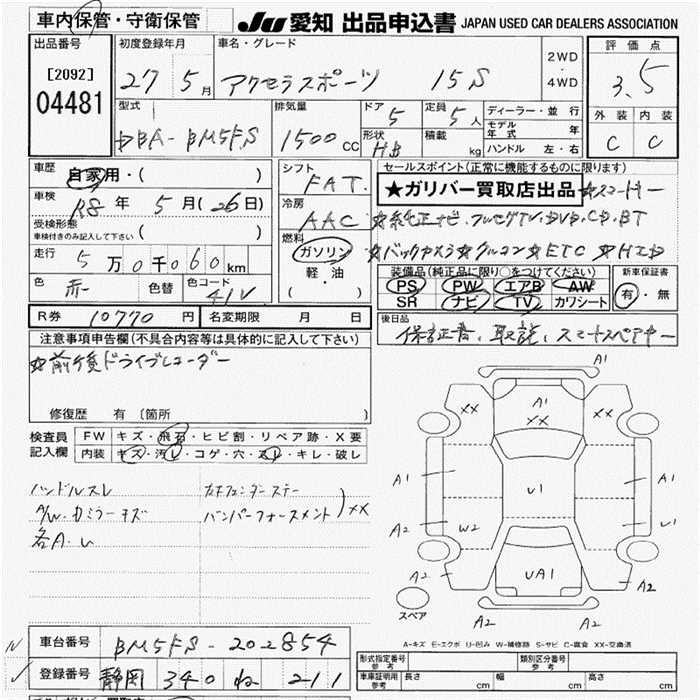 車内保管・守衛保管
JU 愛知 出品申込書 JAPAN USED CAR DEALERS ASSOCIATION
出品番号
[2092]
04481
初度登録年月
27 5月
車名・グレード
アクセラスポーツ 15S
2WD
・
4WD
評価点
3.5
外装 内装
C C
型式
DBA-BM5FS
排気量
1500cc
ドア
5
定員
5人
形状
HB
積載
kg
ディーラー・並行
モデル年式 年
ハンドル 左・右
車歴
自家用・( )
車検
R8年 5月(26日)
受検形態
車検付きのみ記入して下さい ( )
走行
5万0千060km
色
赤
色替
色コード
41V
シフト
FAT
冷房
AAC
燃料
ガソリン
軽・油
( )
セールスポイント(正常に機能するものに限ります)
★ガリバー買取店出品 ☆スマートキー
☆純正ナビ、フルセグTV、DVD、CD、BT
☆バックカメラ☆クルコン☆ETC ☆HID
装備品(純正品に限り○をつけてください)
PS PW エアB AW
SR ナビ TV カワシート
新車保証書
有・無
R券 10770円
名変期限 月 日
後日品
保証書、取説、スマートスペアキー
注意事項申告欄(不具合内容等は具体的に記入して下さい)
☆前後ドライブレコーダー
修復歴 有 〔箇所 〕
検査員記入欄
FW キズ・飛石・ヒビ割・リペア跡・X要
内装 キズ・汚レ・コゲ・穴・スレ・キレ・破レ
ハンドルスレ
A/W.カミラーキズ
各A.U
カチフェンダーステー
バンパーフォースメント)XX
A1
XX
A1
XX
XX
A1
U1
A1
A2
W2
U1
A2
UA1
A2
A2
A2
A2
スペア
A-キズ E-エクボ U-凹み W-補修跡 S-サビ C-腐食 XX-交換済
車台番号 BM5FS-202854
登録番号 静岡 340 ね 211
形式指定番号
参考
類別区分番号
参考
車庫証明用
参考
長さ cm
幅 cm
高さ cm